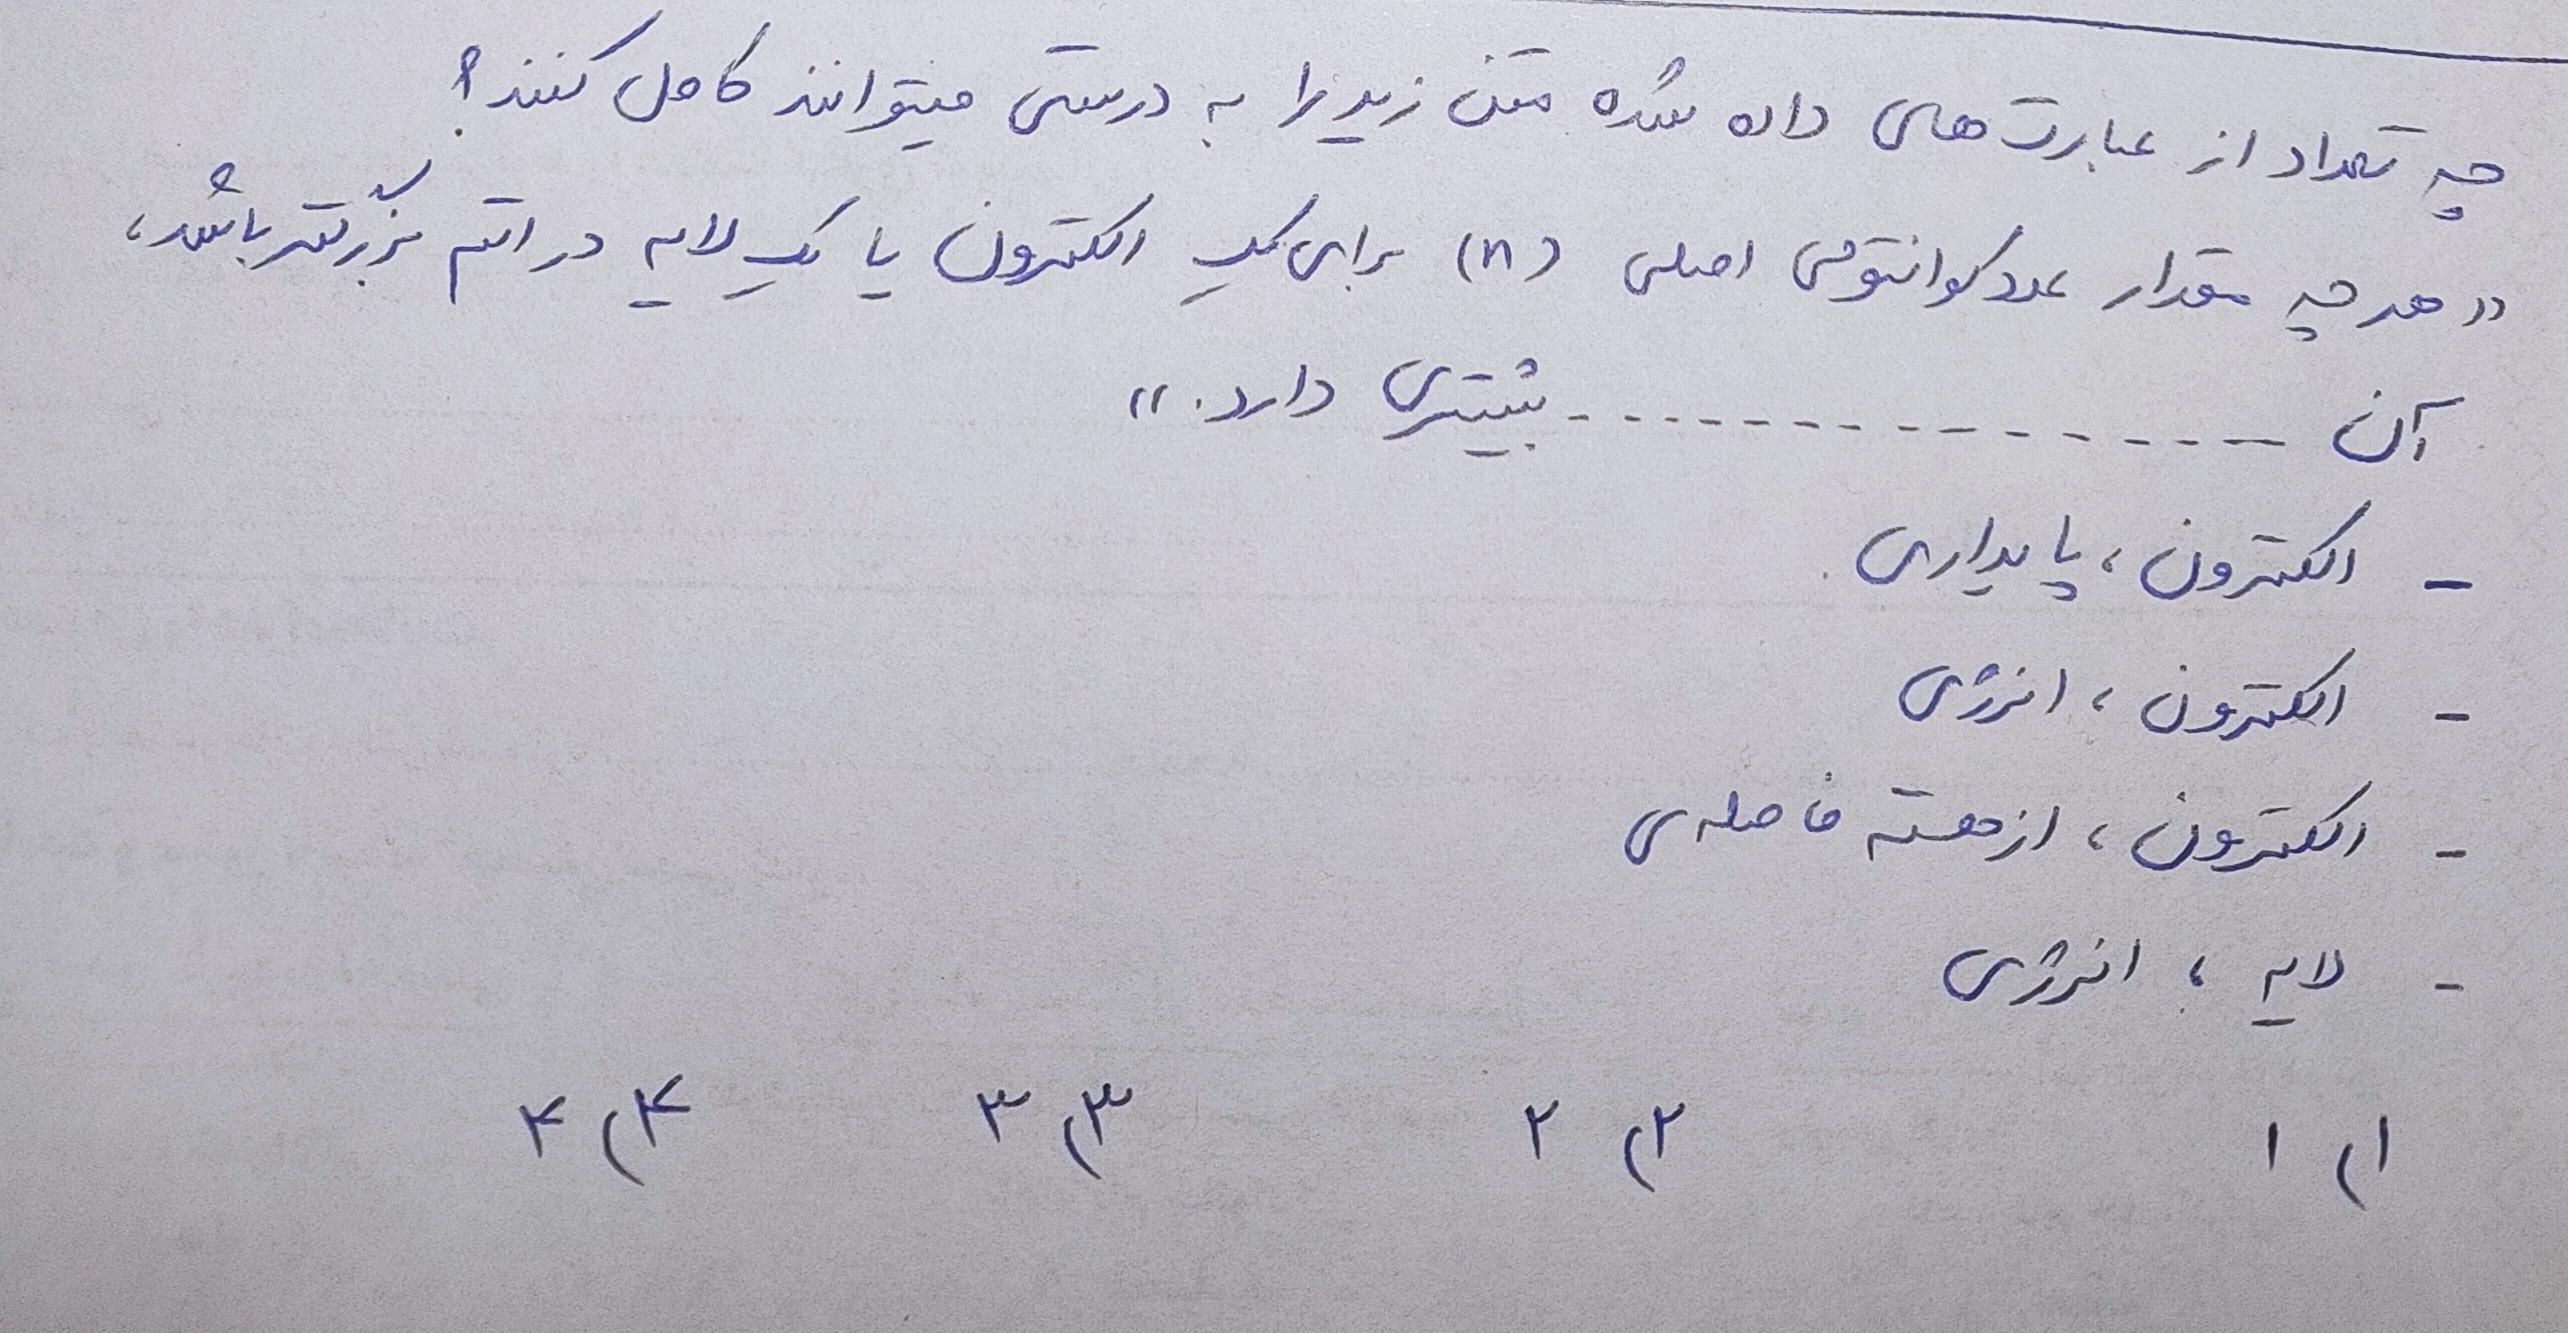 چه تعداد از عبارت‌های داده شده متن زیر را به درستی میتوانند کامل کنند؟
«هر چه مقدار عدد کوانتومی اصلی (n) برای یک الکترون یا یک لایه در اتم بزرگتر باشد،
آن ................ بیشتری دارد.»
- الکترون، پایداری
- الکترون، انرژی
- الکترون، از هسته فاصله‌ی
- لایه، انرژی
۱) ۱ ۲) ۲ ۳) ۳ ۴) ۴